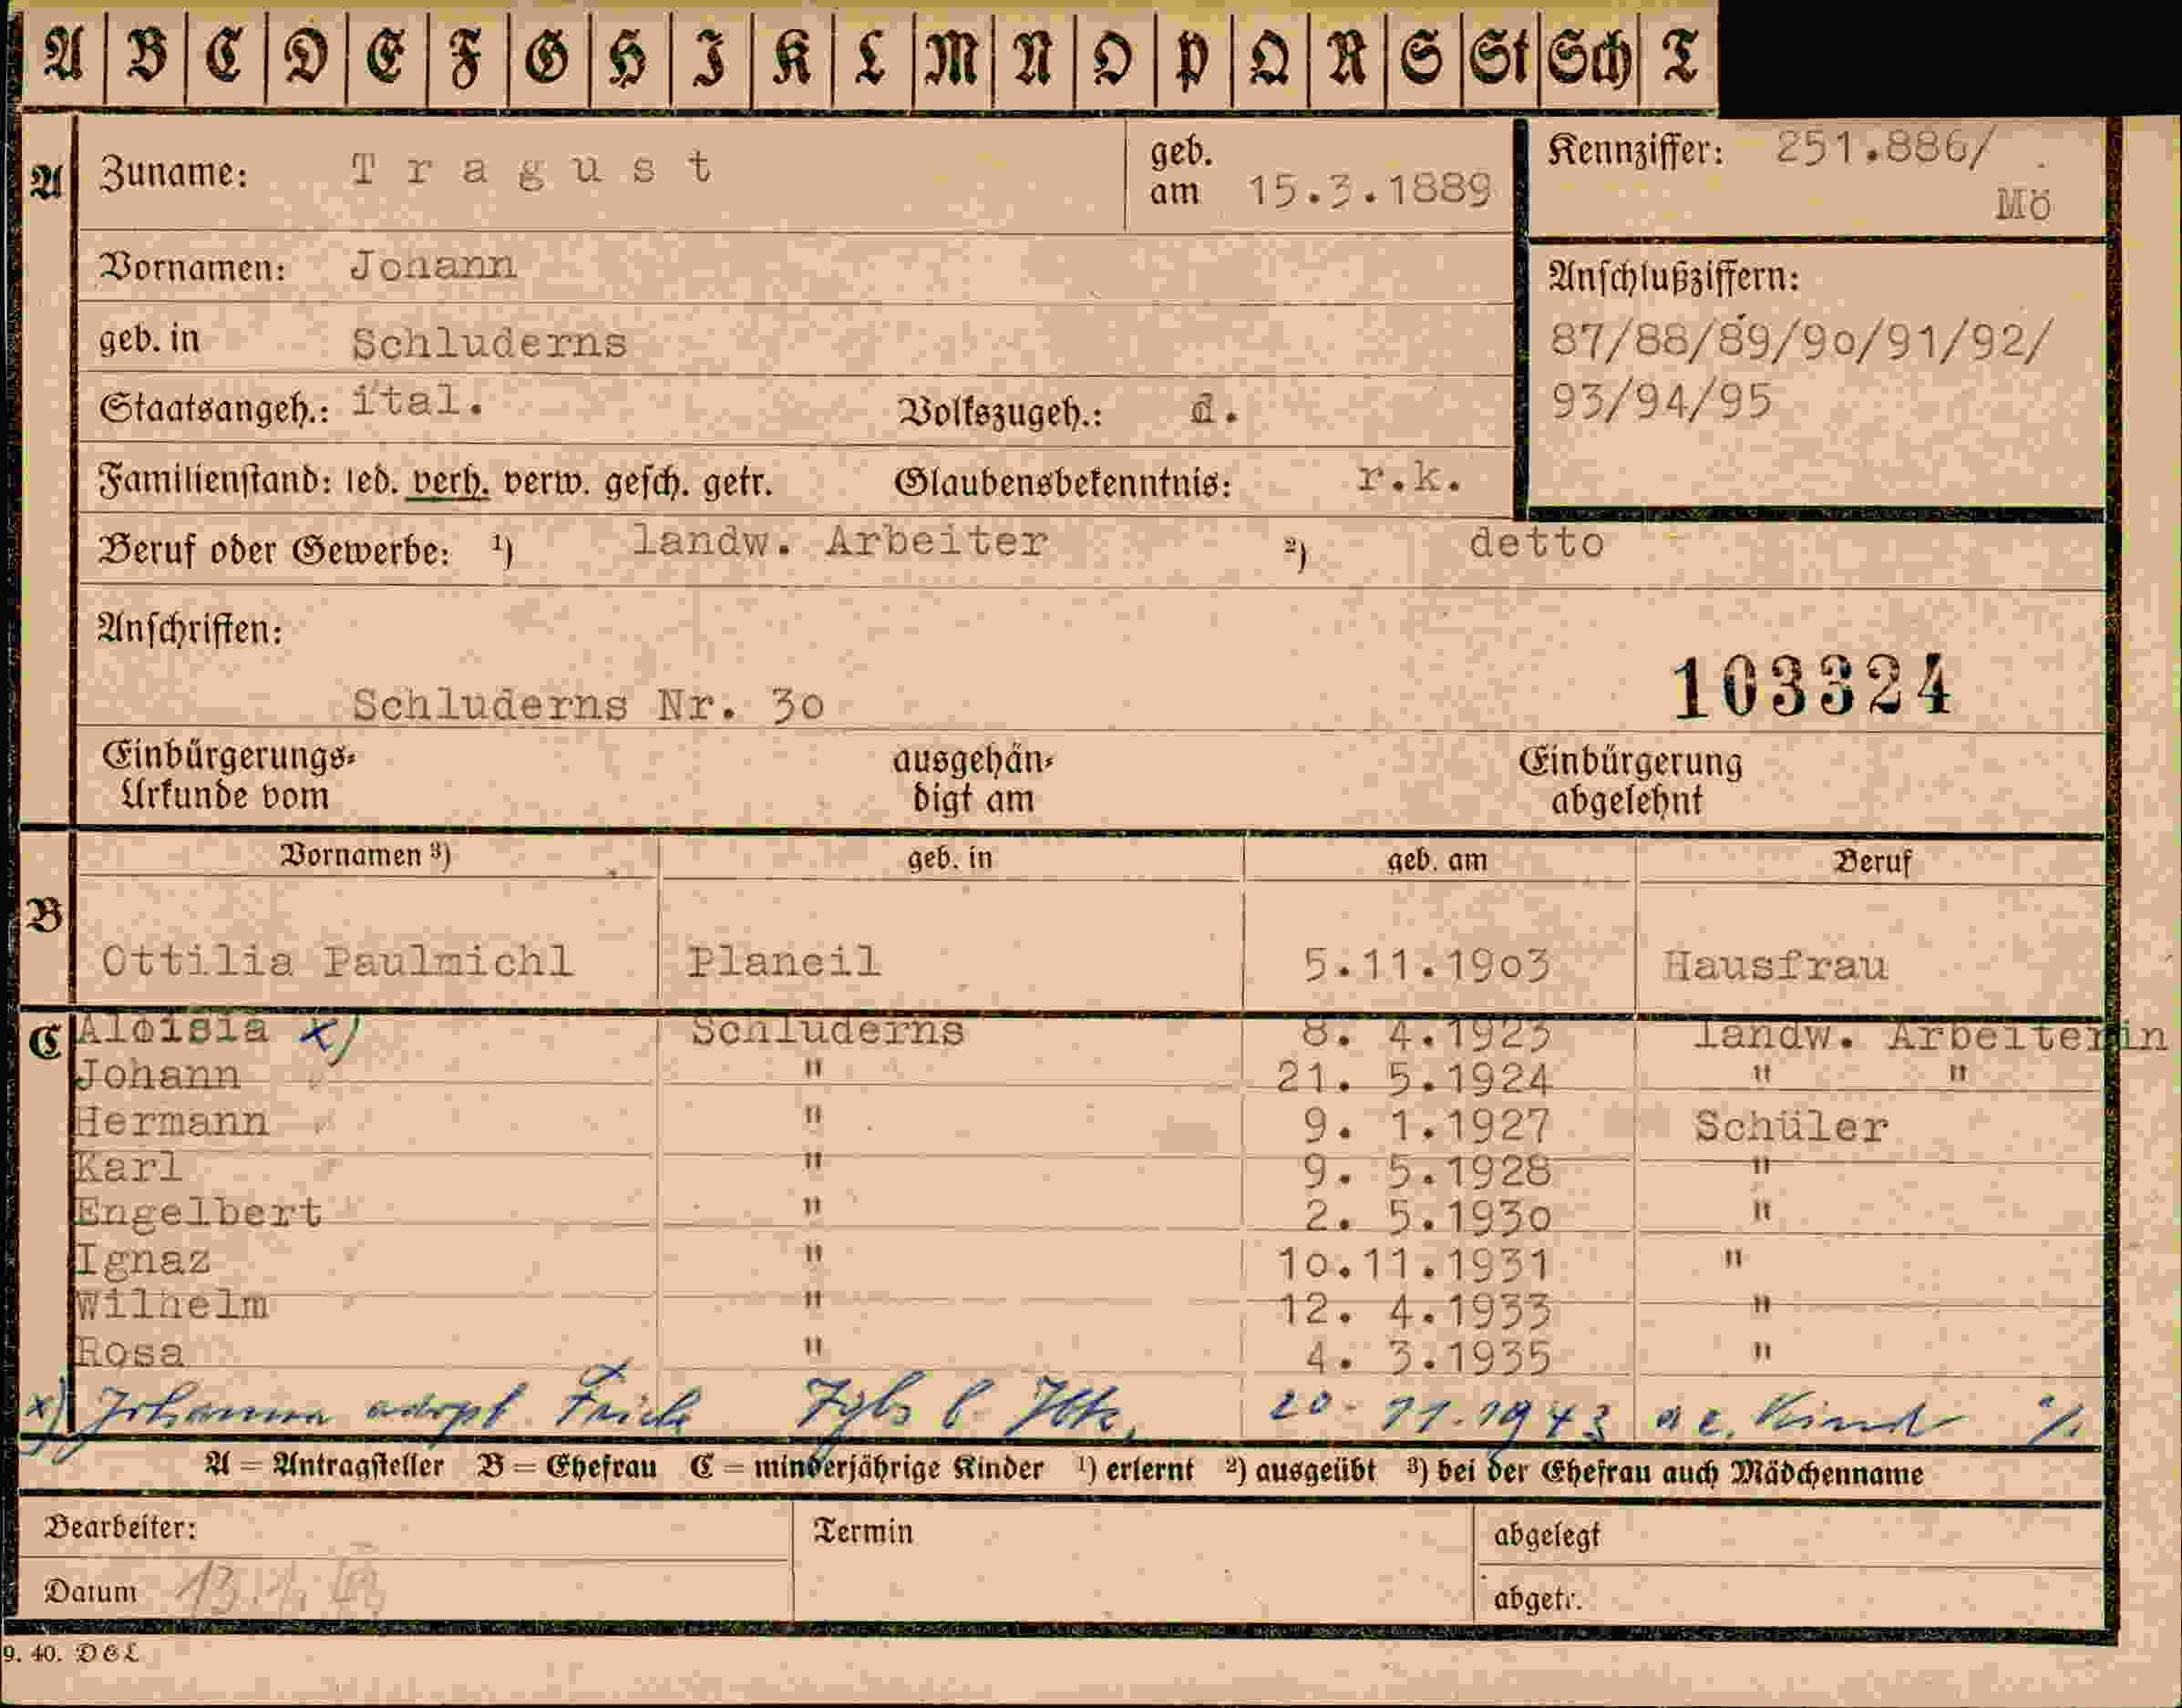 A B C D E F G H I K L M N O P Q R S St Sch T
A
Zuname: Tragust
geb. am 15.3.1889
Kennziffer: 251.886/
Mö
Vornamen: Johann
Anschlußziffern:
87/88/89/90/91/92/
93/94/95
geb. in Schluderns
Staatsangeh.: ital. Volkszugeh.: d.
Familienstand: led. verh. verw. gesch. getr. Glaubensbekenntnis: r.k.
Beruf oder Gewerbe: 1) landw. Arbeiter 2) detto
Anschriften:
103324
Schluderns Nr. 30
Einbürgerungs- ausgehän- Einbürgerung
Urkunde vom digt am abgelehnt
Vornamen 3) geb. in geb. am Beruf
B
Ottilia Paulmichl Planeil 5.11.1903 Hausfrau
C Aloisia x) Schluderns 8. 4.1923 landw. Arbeiterin
Johann " 21. 5.1924 " "
Hermann " 9. 1.1927 Schüler
Karl " 9. 5.1928 "
Engelbert " 2. 5.1930 "
Ignaz " 10.11.1931 "
Wilhelm " 12. 4.1933 "
Rosa " 4. 3.1935 "
x) Johanna adopt. Igls b. Ibk. 20. 11.1943 a.e. Kind
A = Antragsteller B = Ehefrau C = minderjährige Kinder 1) erlernt 2) ausgeübt 3) bei der Ehefrau auch Mädchenname
Bearbeiter: Termin abgelegt
Datum 13.1. abgetr.
9. 40. DEL